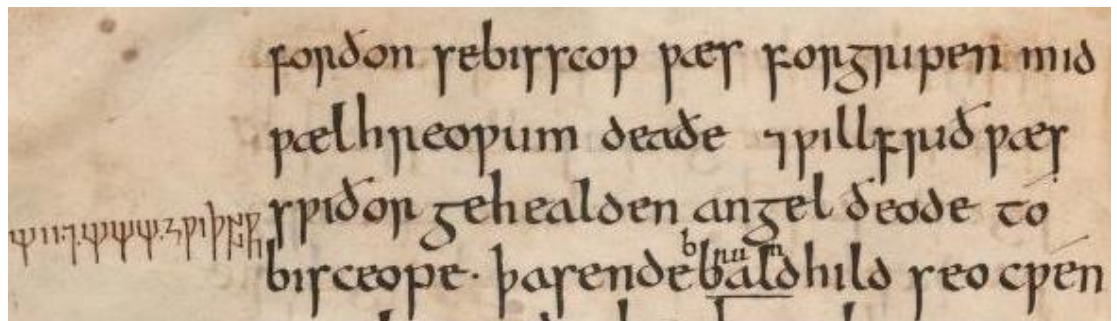 forðon se bisscop ƿæs forgripen mid
ƿælhreoƿum deaðe ⁊ ƿillfrið ƿæs
sƿiðor gehealden angel ðeode to
bisceope· þa sende baldhild seo cƿen